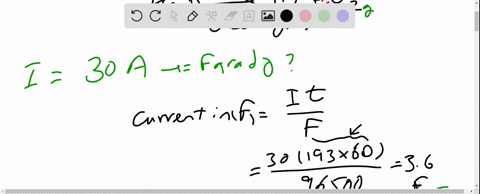 I = 30A → Farady ?
current in (F) = It / F
= 30 (193×60) / 96500 = 3.6